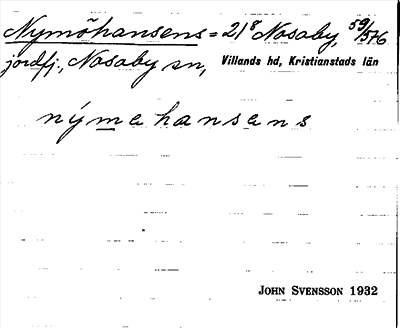 Nymöhansens = 21⁸ Nosaby, 59/576
jordfj., Nosaby sn, Villands hd, Kristianstads län
nýmehansens
JOHN SVENSSON 1932